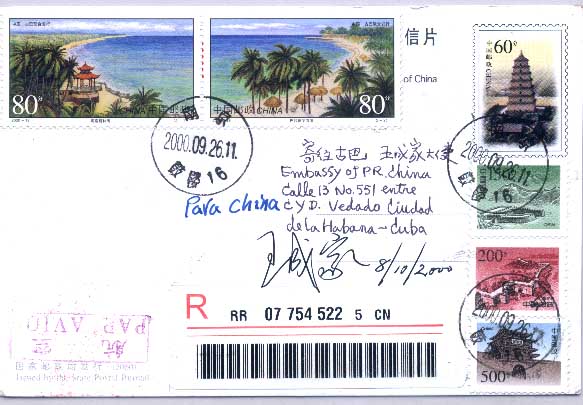 80分
80分
中国邮政CHINA
信片
of China
60分
中国邮政 CHINA
2000.09.26.11
16
2000.09.26.11
16
寄往古巴 王成家大使
Embassy of PR. China
Calle 13 No. 551 entre
C Y D. Vedado Ciudad
de la Habana - Cuba
Para China
王成家 8/10/2000
200分
中国邮政
R
RR 07 754 522 5 CN
500分
航空
PAR AVION
国家邮政局发行 (2000)
Issued by the State Postal Bureau